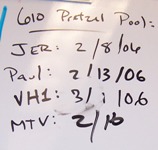 610 Pretzel Pool:
JER: 2/8/06
Paul: 2/13/06
VH1: 3/1/06
MTV: 2/10